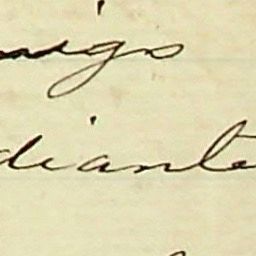 migo
diante